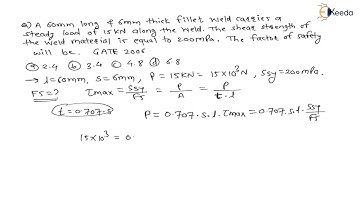 Ekeeda
Q) A 60mm long & 6mm thick fillet weld carries a
steady load of 15KN along the weld. The shear strength of
the weld material is equal to 200mpa. The factor of safety
will be. GATE 2006
ⓐ 2.4 ⓑ 3.4 ⓒ 4.8 ⓓ 6.8
→ l=60mm, s=6mm, P=15KN=15×10³N, Ssy=200mpa.
FS=? τmax = Ssy/FS = P/A = P/t.l
t=0.707.s P=0.707.s.l.τmax=0.707.s.l.Ssy/FS
15×10³ = 0.